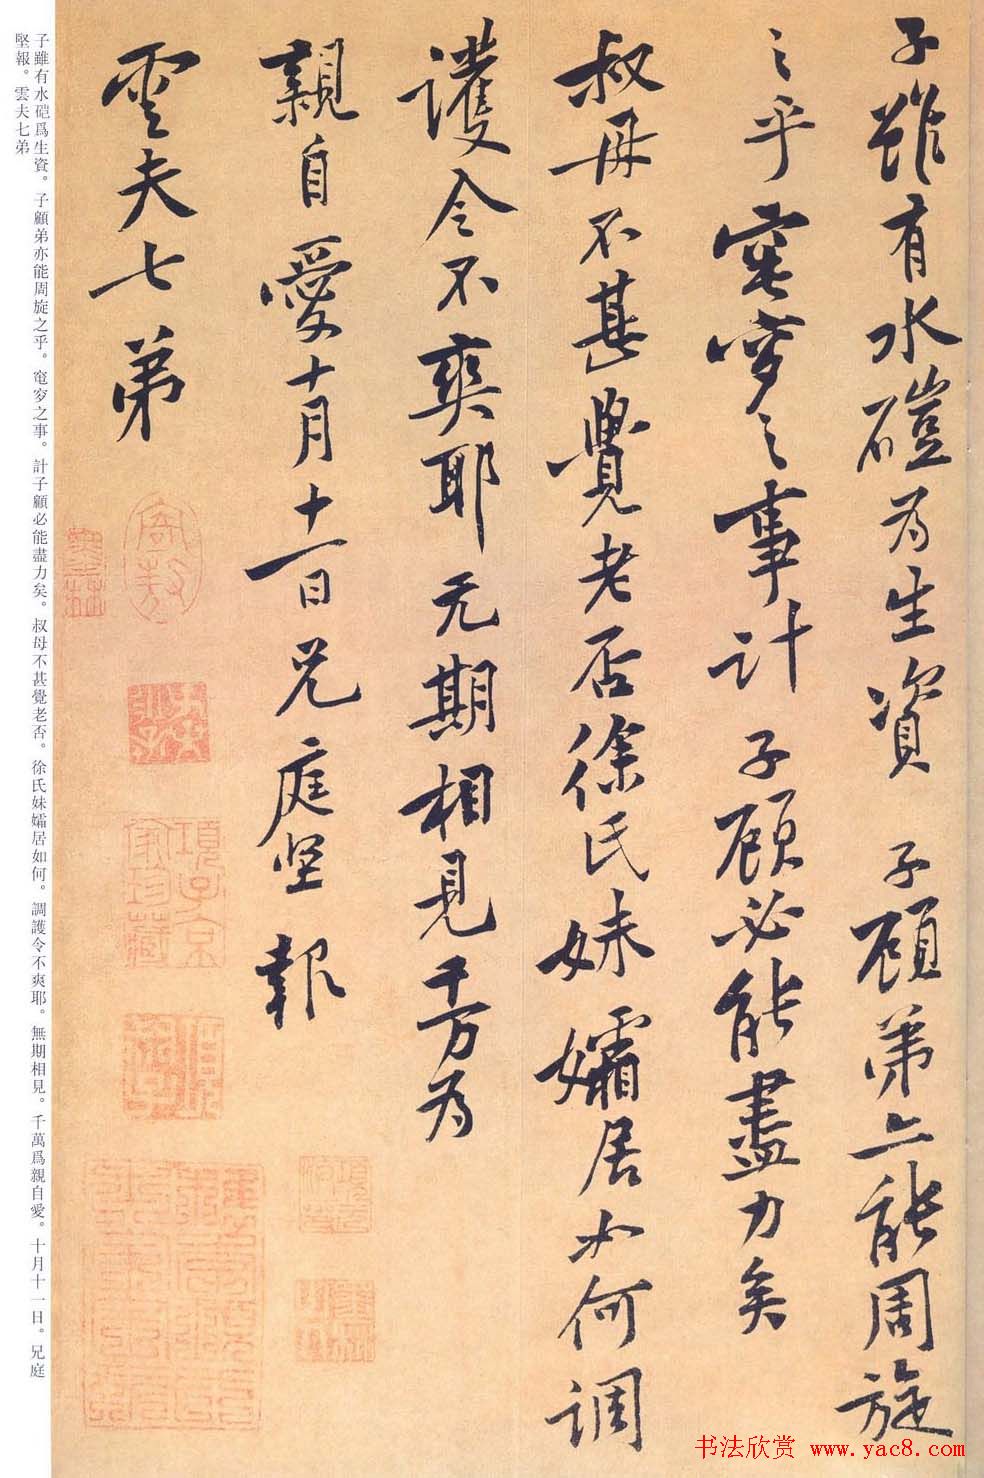 子雖有水磑为生資子顾弟亦能周旋
之乎窀穸之事计子顾必能盡力矣
叔母不甚覺老否徐氏妹孀居如何调
護令不爽耶无期相見千万为
親自愛十月十一日兄庭坚報
雲夫七弟
子雖有水磑爲生資。子顧弟亦能周旋之乎。窀穸之事。計子顧必能盡力矣。叔母不甚覺老否。徐氏妹孀居如何。調護令不爽耶。無期相見。千萬爲親自愛。十月十一日。兄庭
堅報。雲夫七弟
項子京
家珍藏
书法欣赏 www.yac8.com